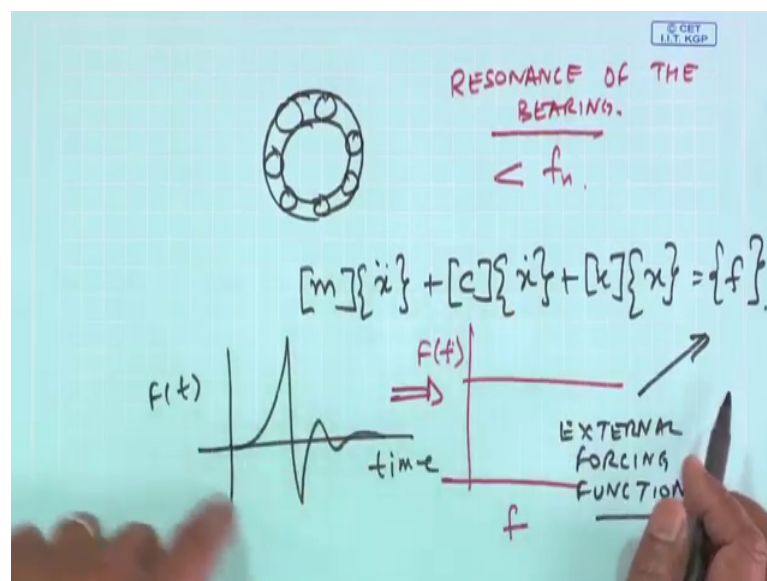 © CET
I.I.T. KGP
RESONANCE OF THE
BEARING.
< fn.
[m]{ẍ} + [c]{ẋ} + [k]{x} = {f}
F(t)
time
F(f)
f
EXTERNAL
FORCING
FUNCTION